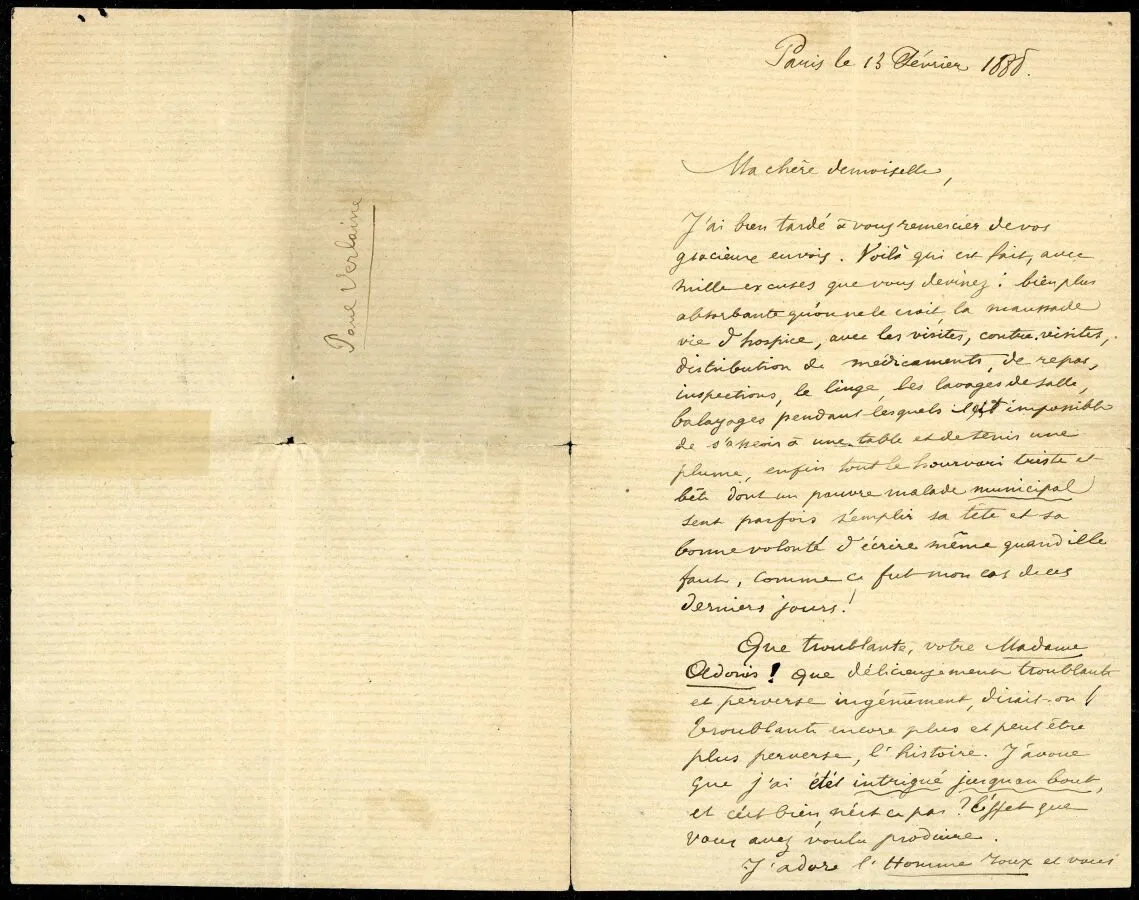 Paul Verlaine
Paris le 13 Février 188
Ma chère demoiselle,
J'ai bien tardé à vous remercier de vos
gracieux envois. Voilà qui est fait, avec
mille excuses que vous devinez : bien plus
absorbante qu'on ne le croit la maussade
vie d'hospice, avec les visites, contre-visites,
distribution de médicaments, de repas,
inspections, le linge, les lavages de salle,
balayages pendant lesquels il est impossible
de s'asseoir à une table et de tenir une
plume, enfin tout le hourvari triste et
bête dont un pauvre malade municipal
sent parfois s'emplir sa tête et sa
bonne volonté d'écrire même quand il le
faut, comme ce fut mon cas de ces
derniers jours !
Que troublante, votre Madame
Adonis ! Que délicieusement troublante
et perverse ingénûment, dirait-on !
Troublante encore plus et peut être
plus perverse, l'histoire. J'avoue
que j'ai été intrigué jusqu'au bout,
et c'est bien, n'est ce pas ? l'effet que
vous avez voulu produire.
J'adore l'Homme roux et vous